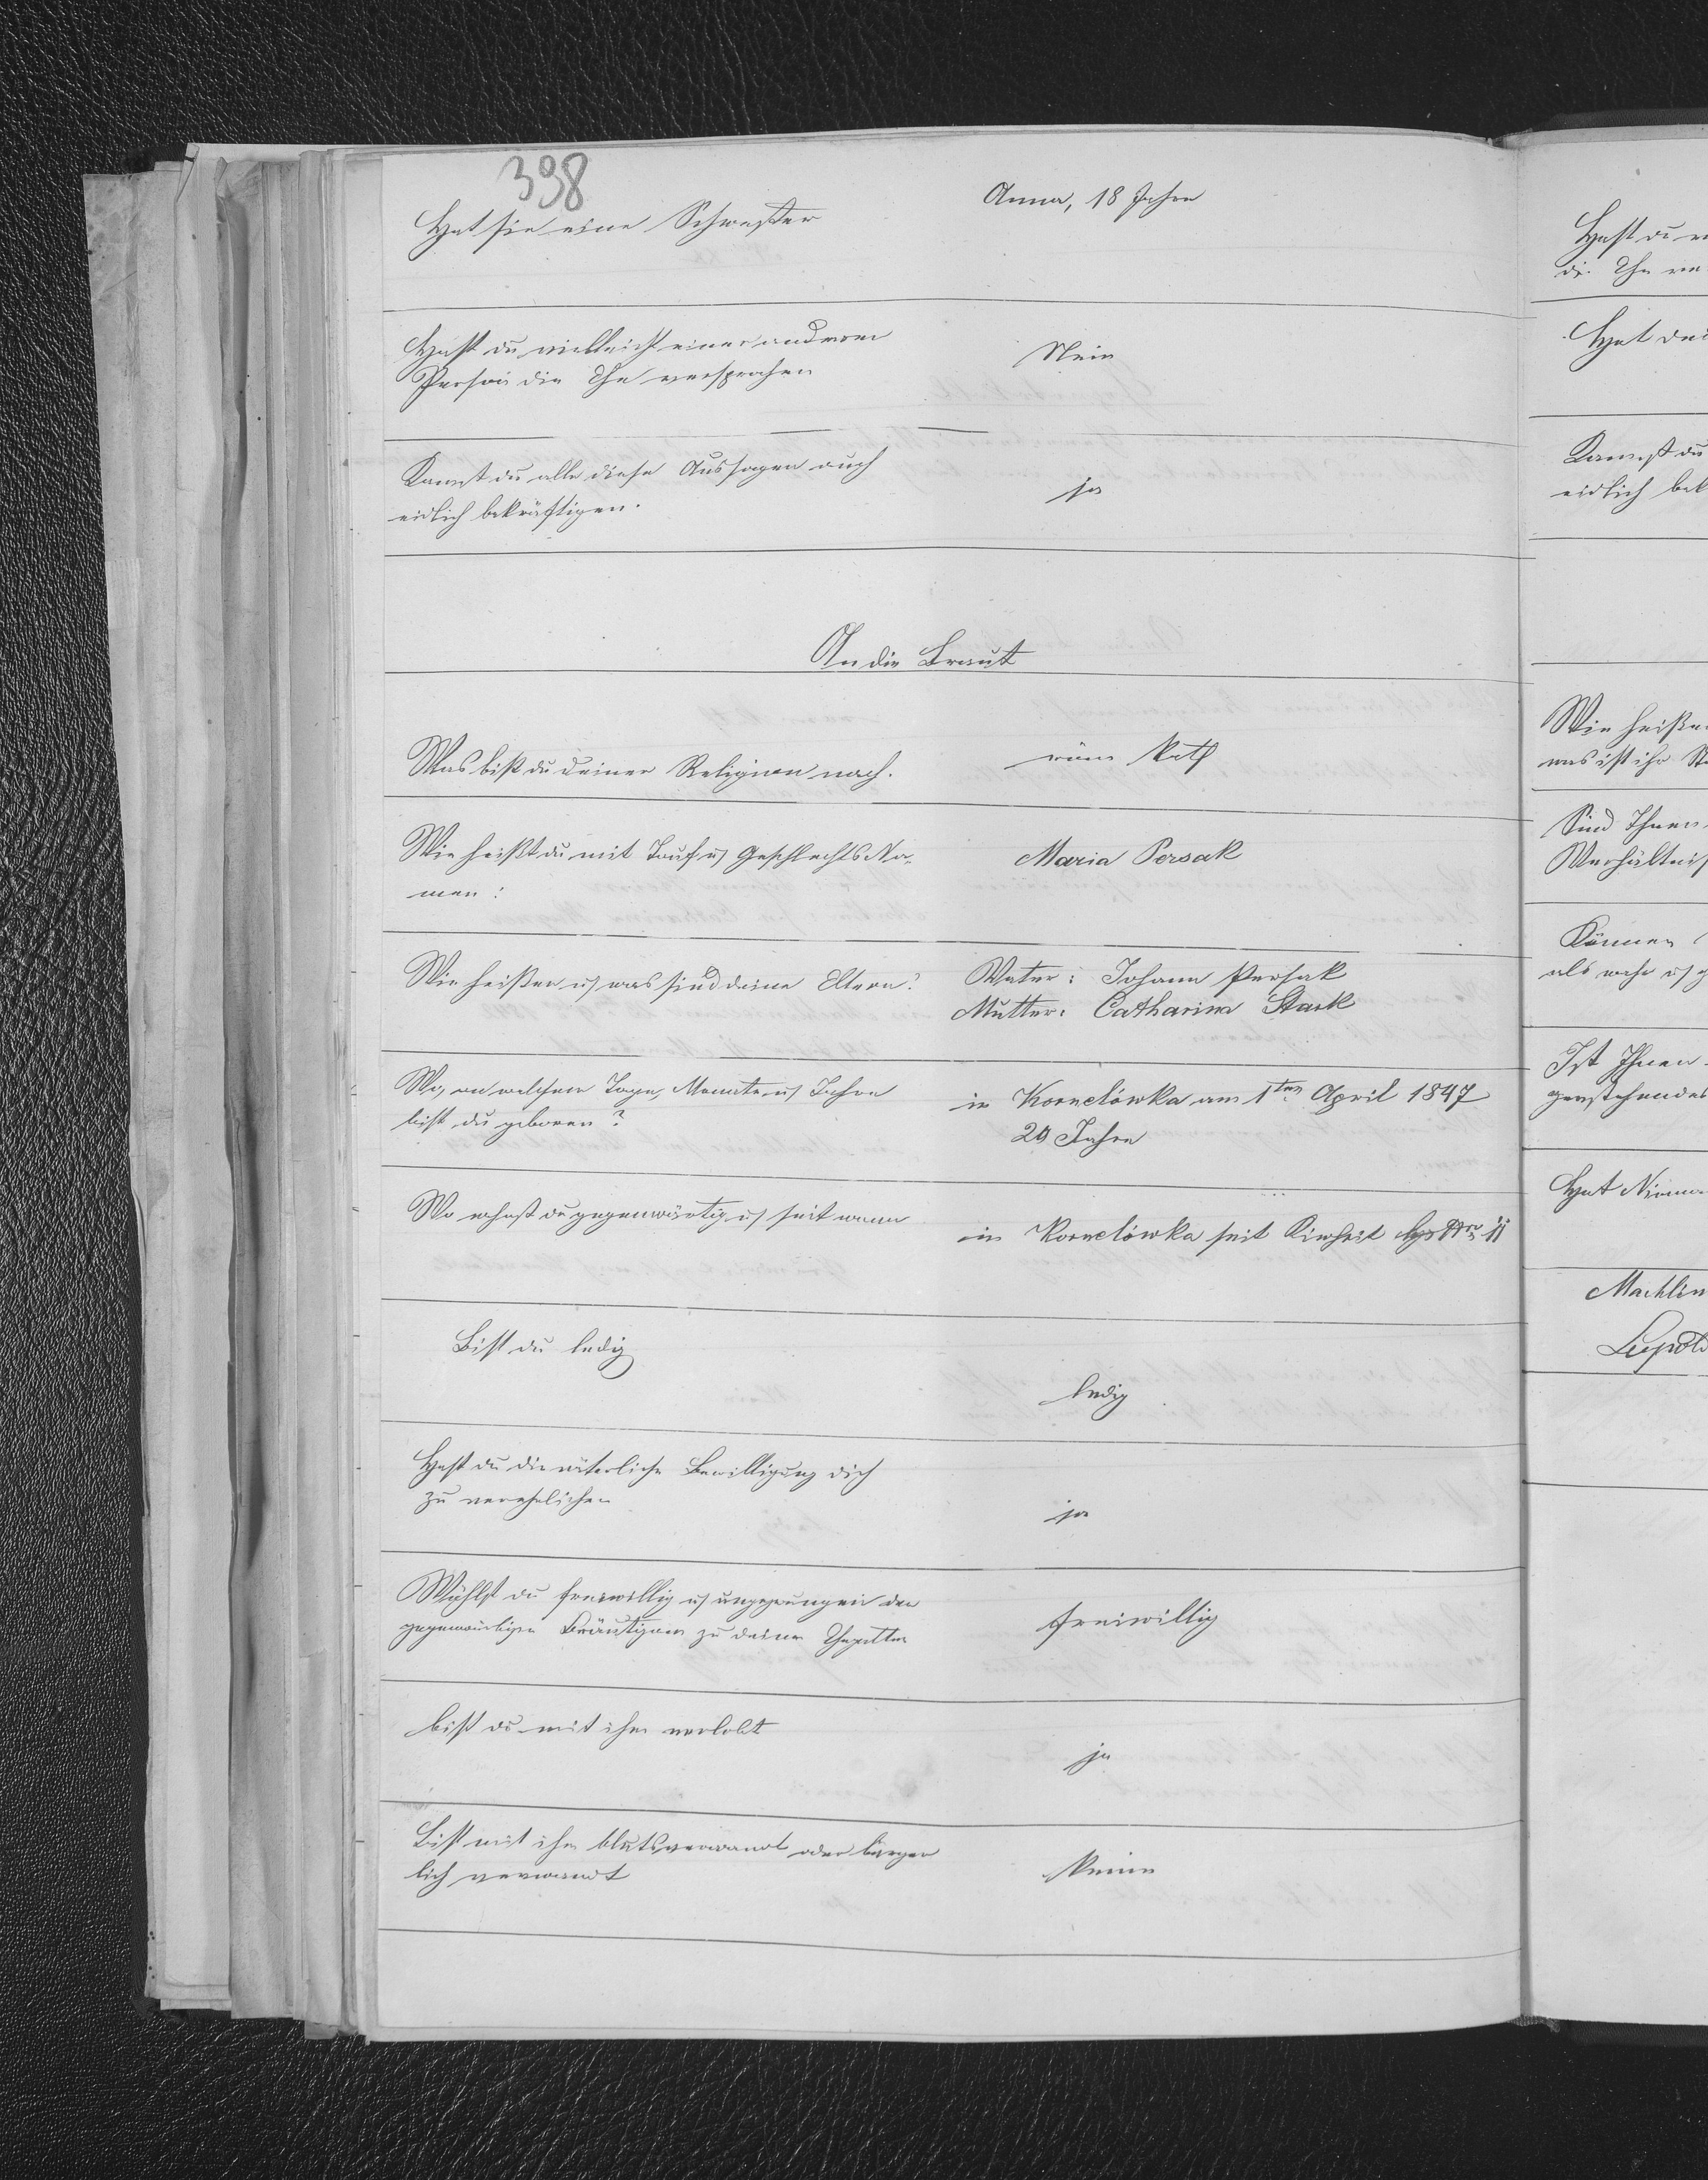 398
Hat sie eine Schwester
Anna, 18 Jahre
Hast du vielleicht einer anderen
Person die Ehe versprochen
Nein
Kanst du alle diese Aussagen auch
eidlich bekräftigen.
ja
An die Braut
Was bist du deiner Religion nach.
röm Kath
Wie heißt du mit Tauf u Geschlechts Na-
men:
Maria Persak
Wie heißen u was sind deine Eltern?
Vater: Johann Persak
Mutter: Catharina Stark
Wo, an welchem Tage, Monate u Jahre
bist du geboren?
in Kornelówka am 1ten April 1847
20 Jahre
Wo wohnst du gegenwärtig u seit wann
in Kornelówka seit Kindheit Hs Nro 11
Bist du ledig
ledig
Hast du die väterliche Bewilligung dich
zu verehelichen
ja
Wählst du freiwillig u ungezwungen den
gegenwärtigen Bräutigam zu deinem Ehegatten
freiwillig
bist du mit ihm verlobt
ja
Bist mit ihm blutsverwandt oder bürger
lich verwandt
keine
Hast du
die Ehe
Hat
Kannst du
eidlich bek
Wie heißen
was ist ihr
Sind Ihnen
Verhältniß
Können
als wahr u
Ist Ihnen
genstehendes
Hat Niema
Machlin
Leopold